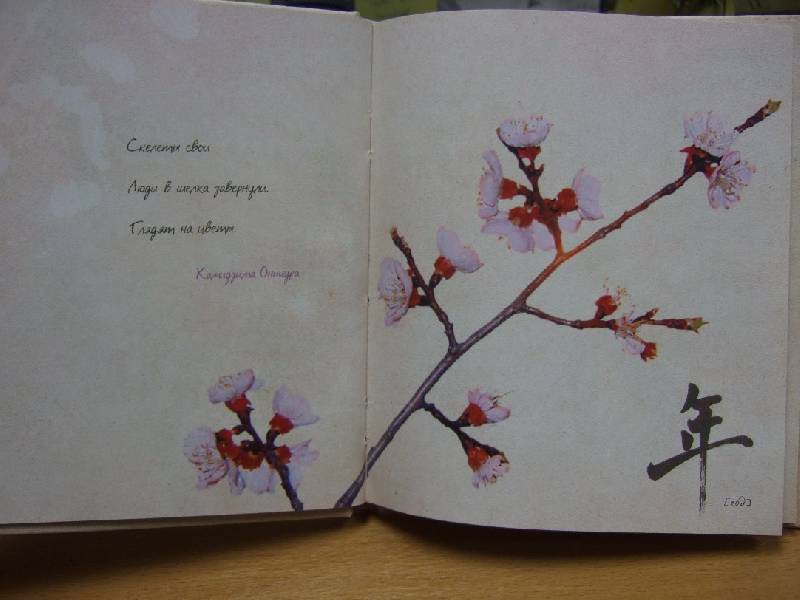 Скелеты свои
Люди в шелка завернули.
Глядят на цветы.
Камидзима Оницура
年
[год]